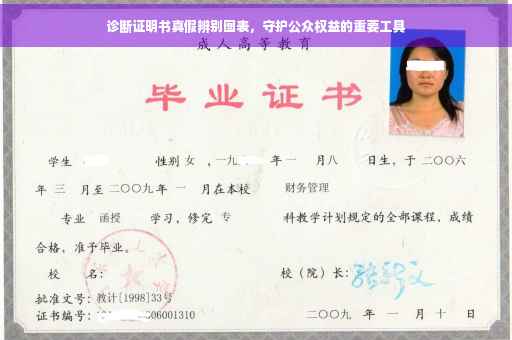 诊断证明书真假辨别图表，守护公众权益的重要工具
成人高等教育
毕业证书
学生 性别 女 ，一九 年 一 月八 日生，于 二〇〇六
年 三 月至 二〇〇九 年 一 月在本校 财务管理
专业 函授 学习，修完 专 科教学计划规定的全部课程，成绩
合格，准予毕业。
校 名： 校（院）长：
批准文号：教计[1998]33号
证书编号： 06001310 二〇〇九 年 一 月 十 日